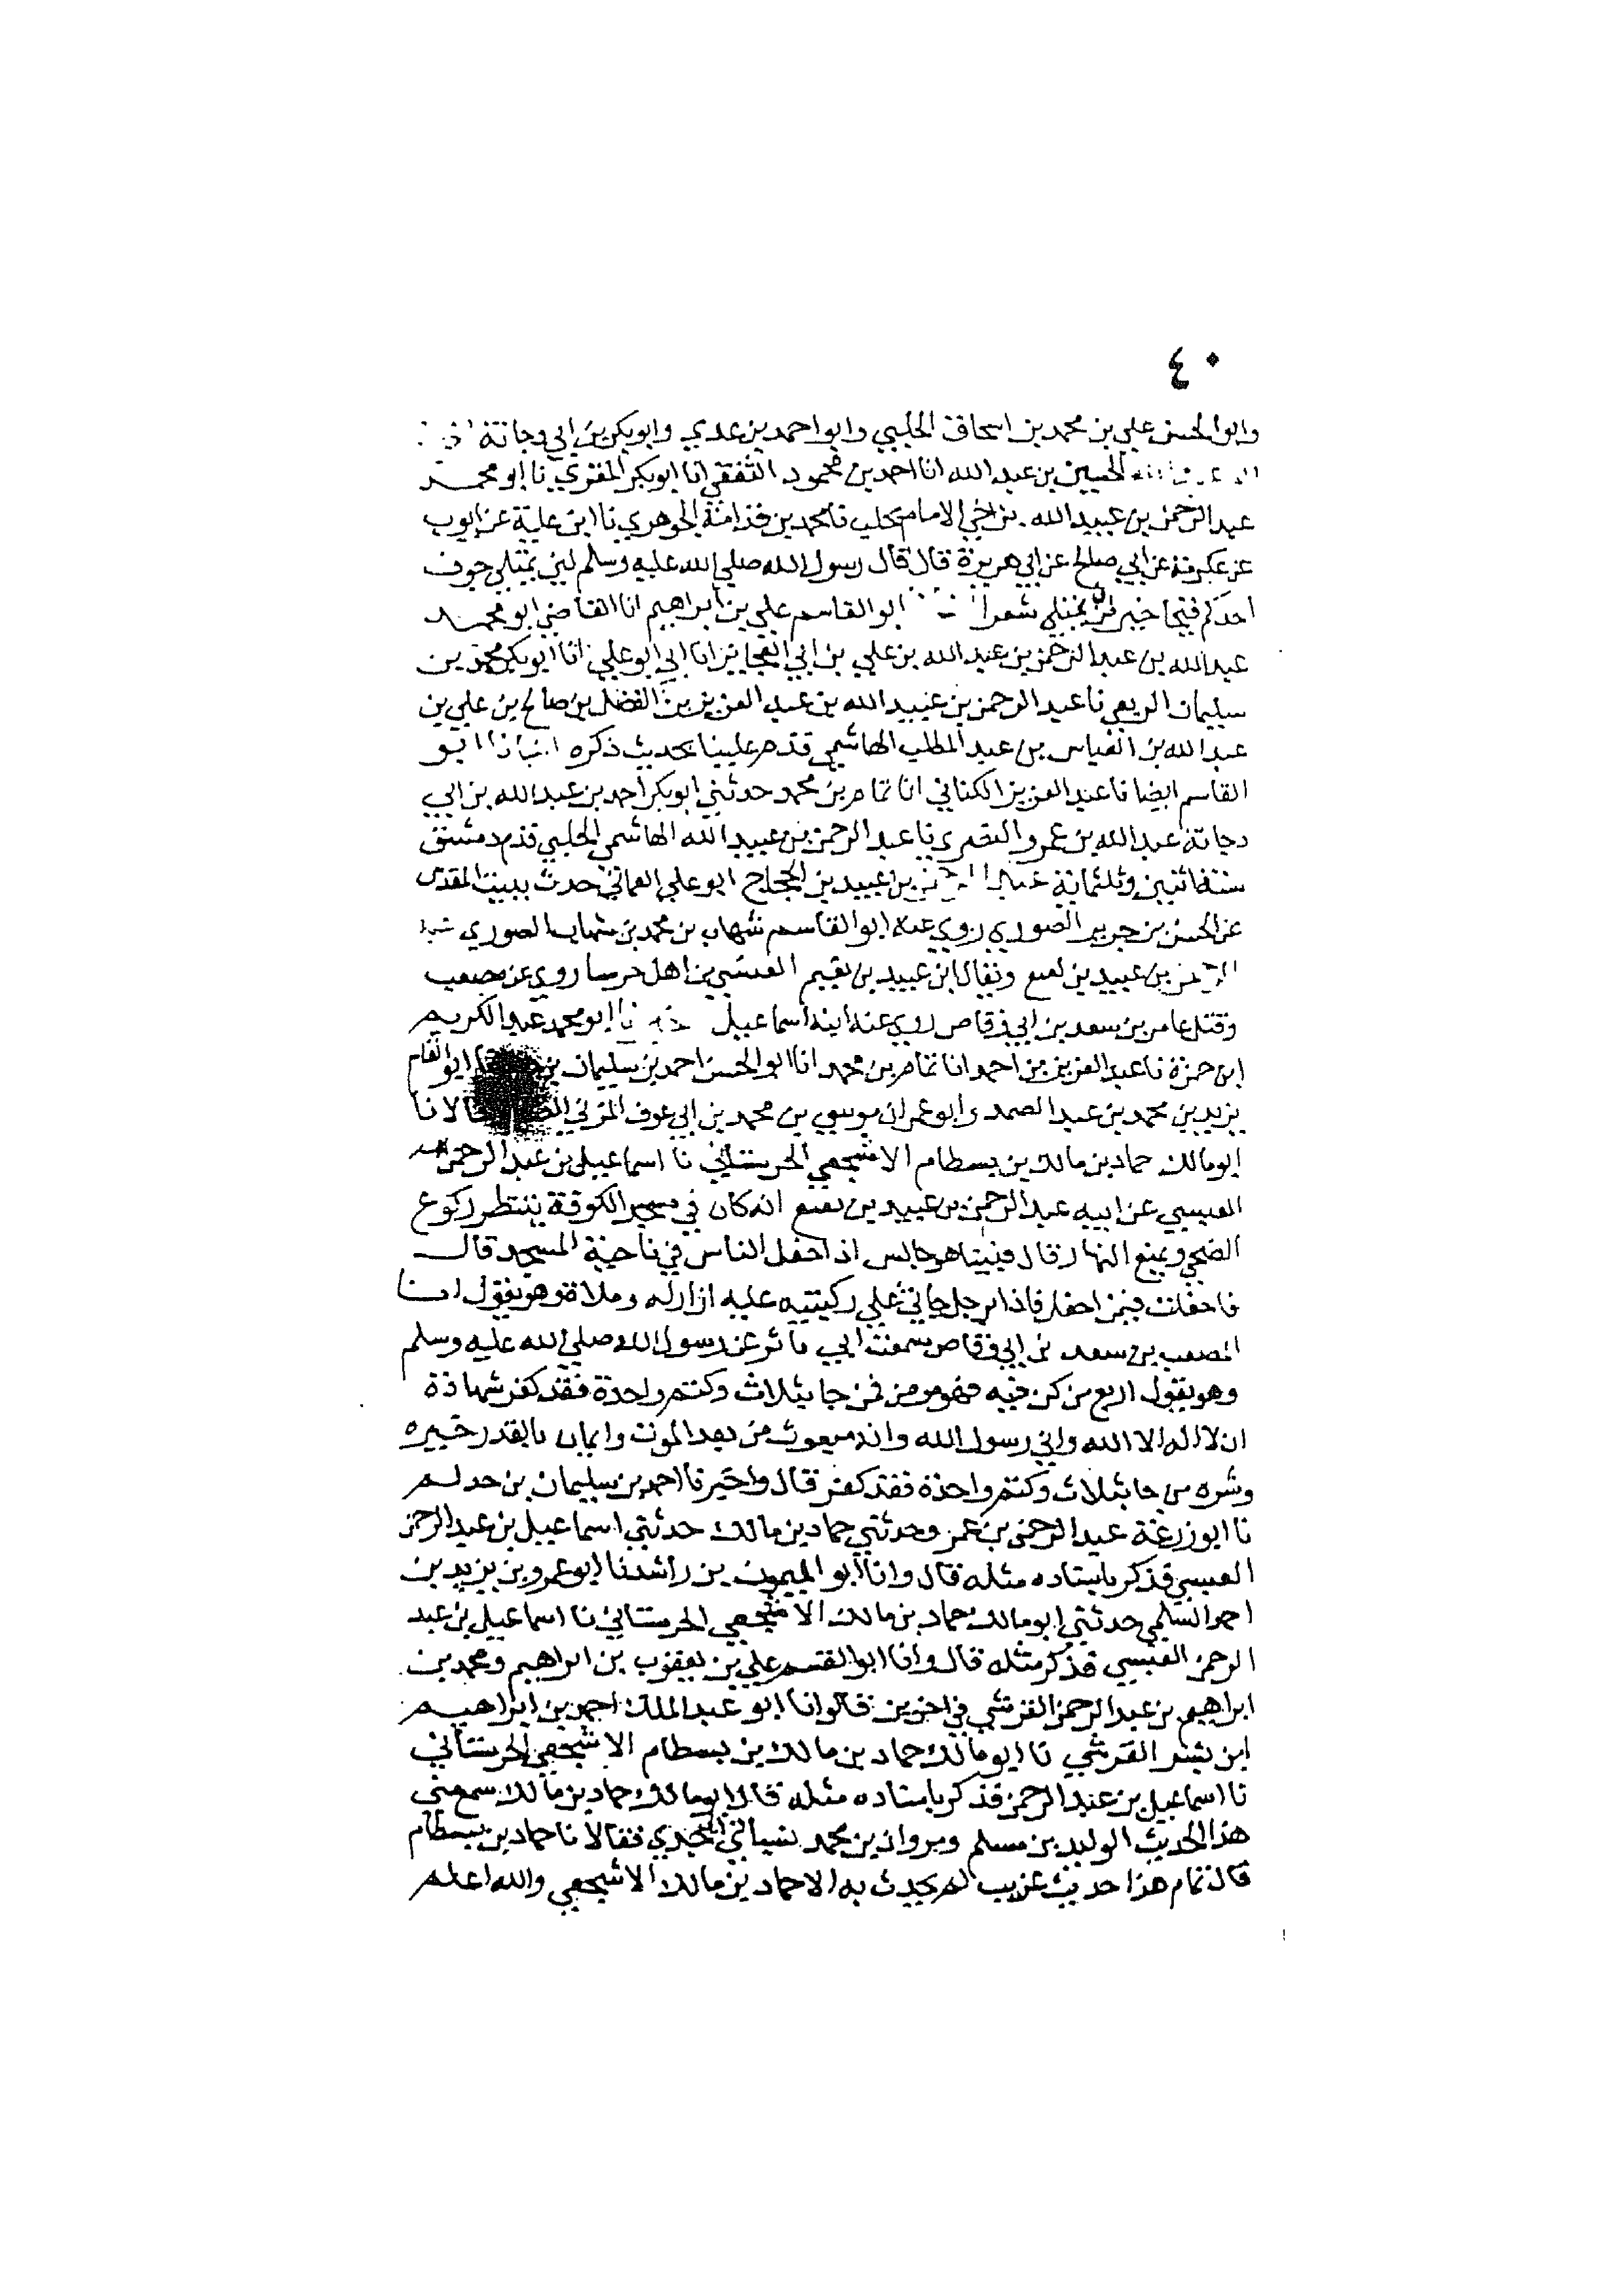 ٤٠
وابو الحسن علي بن محمد بن اسحاق الحلبي وابو احمد بن عدي وابو بكر بن ابي دجانة
الحسين بن عبد الله انا احمد بن محمود الثقفي انا ابو بكر المقري نا ابو محمد
عبد الرحمن بن عبيد الله بن اخي الامام بحلب نا محمد بن قدامة الجوهري نا ابن علية عن ايوب
عن عكرمة عن ابي صالح عن ابي هريرة قال قال رسول الله صلي الله عليه وسلم لين يمتلي جوف
احدكم قيحا خير من ان يمتلي شعرا ابو القاسم علي بن ابراهيم انا القاضي ابو محمد
عبد الله بن عبد الرحمن بن عبد الله بن علي بن ابي العجايز انا ابي ابو علي انا ابو بكر محمد بن
سليمان الربعي نا عبد الرحمن بن عبيد الله بن عبد العزيز بن الفضل بن صالح بن علي بن
عبد الله بن العباس بن عبد المطلب الهاشمي قدم علينا بحديث ذكره انبانا ابو
القاسم ايضا نا عبد العزيز الكتاني انا تمام بن محمد حدثني ابو بكر احمد بن عبد الله بن ابي
دجانة عبد الله بن عمرو النصري نا عبد الرحمن بن عبيد الله الهاشمي الحلبي قدم دمشق
سنة اثنين وثلثماية بن عبيد بن الحجاج ابو علي العماني حدث ببيت المقدس
عن الحسن بن جرير الصوري روي عنه ابو القاسم شهاب بن محمد بن شهاب الصوري
بن عبيد بن نفيع ويقال ابن عبيد بن نفيع العبسي من اهل حرستا روي عن مصعب
وقيل عامر بن سعد بن ابي وقاص روي عنه ابنه اسماعيل نا ابو محمد عبد الكريم
ابن حمزة نا عبد العزيز بن احمد انا تمام بن محمد انا ابو الحسن احمد بن سليمان بن ابو القاسم
يزيد بن محمد بن عبد الصمد وابو عمران موسي بن محمد بن ابي عوف المزني قالا نا
ابو مالك حماد بن مالك بن بسطام الاشجعي الحرستاني نا اسماعيل بن عبد الرحمن
العبسي عن ابيه عبد الرحمن بن عبيد بن نفيع انه كان في مسجد الكوفة ينتظر ركوع
الضحي ويمتع النهار قال فبينا هو جالس اذ احفل الناس في ناحية المسجد قال
فاحفلت فيمن احفل فاذا برجل جاثي علي ركبتيه عليه ازار له وملاة وهو يقول انا
المصعب بن سعد بن ابي وقاص سمعت ابي ياثر عن رسول الله صلي الله عليه وسلم
وهو يقول اربع من كن فيه فهو مومن فمن جا بثلاث وكتم واحدة فقد كفر شهادة
ان لا اله الا الله واني رسول الله وانه مبعوث من بعد الموت وايمان بالقدر خيره
وشره من جا بثلاث وكتم واحدة فقد كفر قال واخبرنا احمد بن سليمان بن حدلم
نا ابو زرعة عبد الرحمن بن عمر وحدثني حماد بن مالك حدثني اسماعيل بن عبد الرحمن
العبسي فذكر باسناده مثله قال وانا ابو الميمون بن راشد نا ابو عمرو بن يزيد بن
احمد السلمي حدثني ابو مالك حماد بن مالك الاشجعي الحرستاني نا اسماعيل بن عبد
الرحمن العبسي فذكر مثله قال وانا ابو القسم علي بن يعقوب بن ابراهيم ومحمد بن
ابراهيم بن عبد الرحمن القرشي في اخرين قالوا نا ابو عبد الملك احمد بن ابراهيم
ابن بشر القرشي نا ابو مالك حماد بن مالك بن بسطام الاشجعي الحرستاني
نا اسماعيل بن عبد الرحمن فذكر باسناده مثله قال ابو مالك حماد بن مالك سمع مني
هذا الحديث الوليد بن مسلم ومروان بن محمد فقالا نا حماد بن بسطام
قال تمام هذا حديث غريب لم يحدث به الا حماد بن مالك الاشجعي والله اعلم